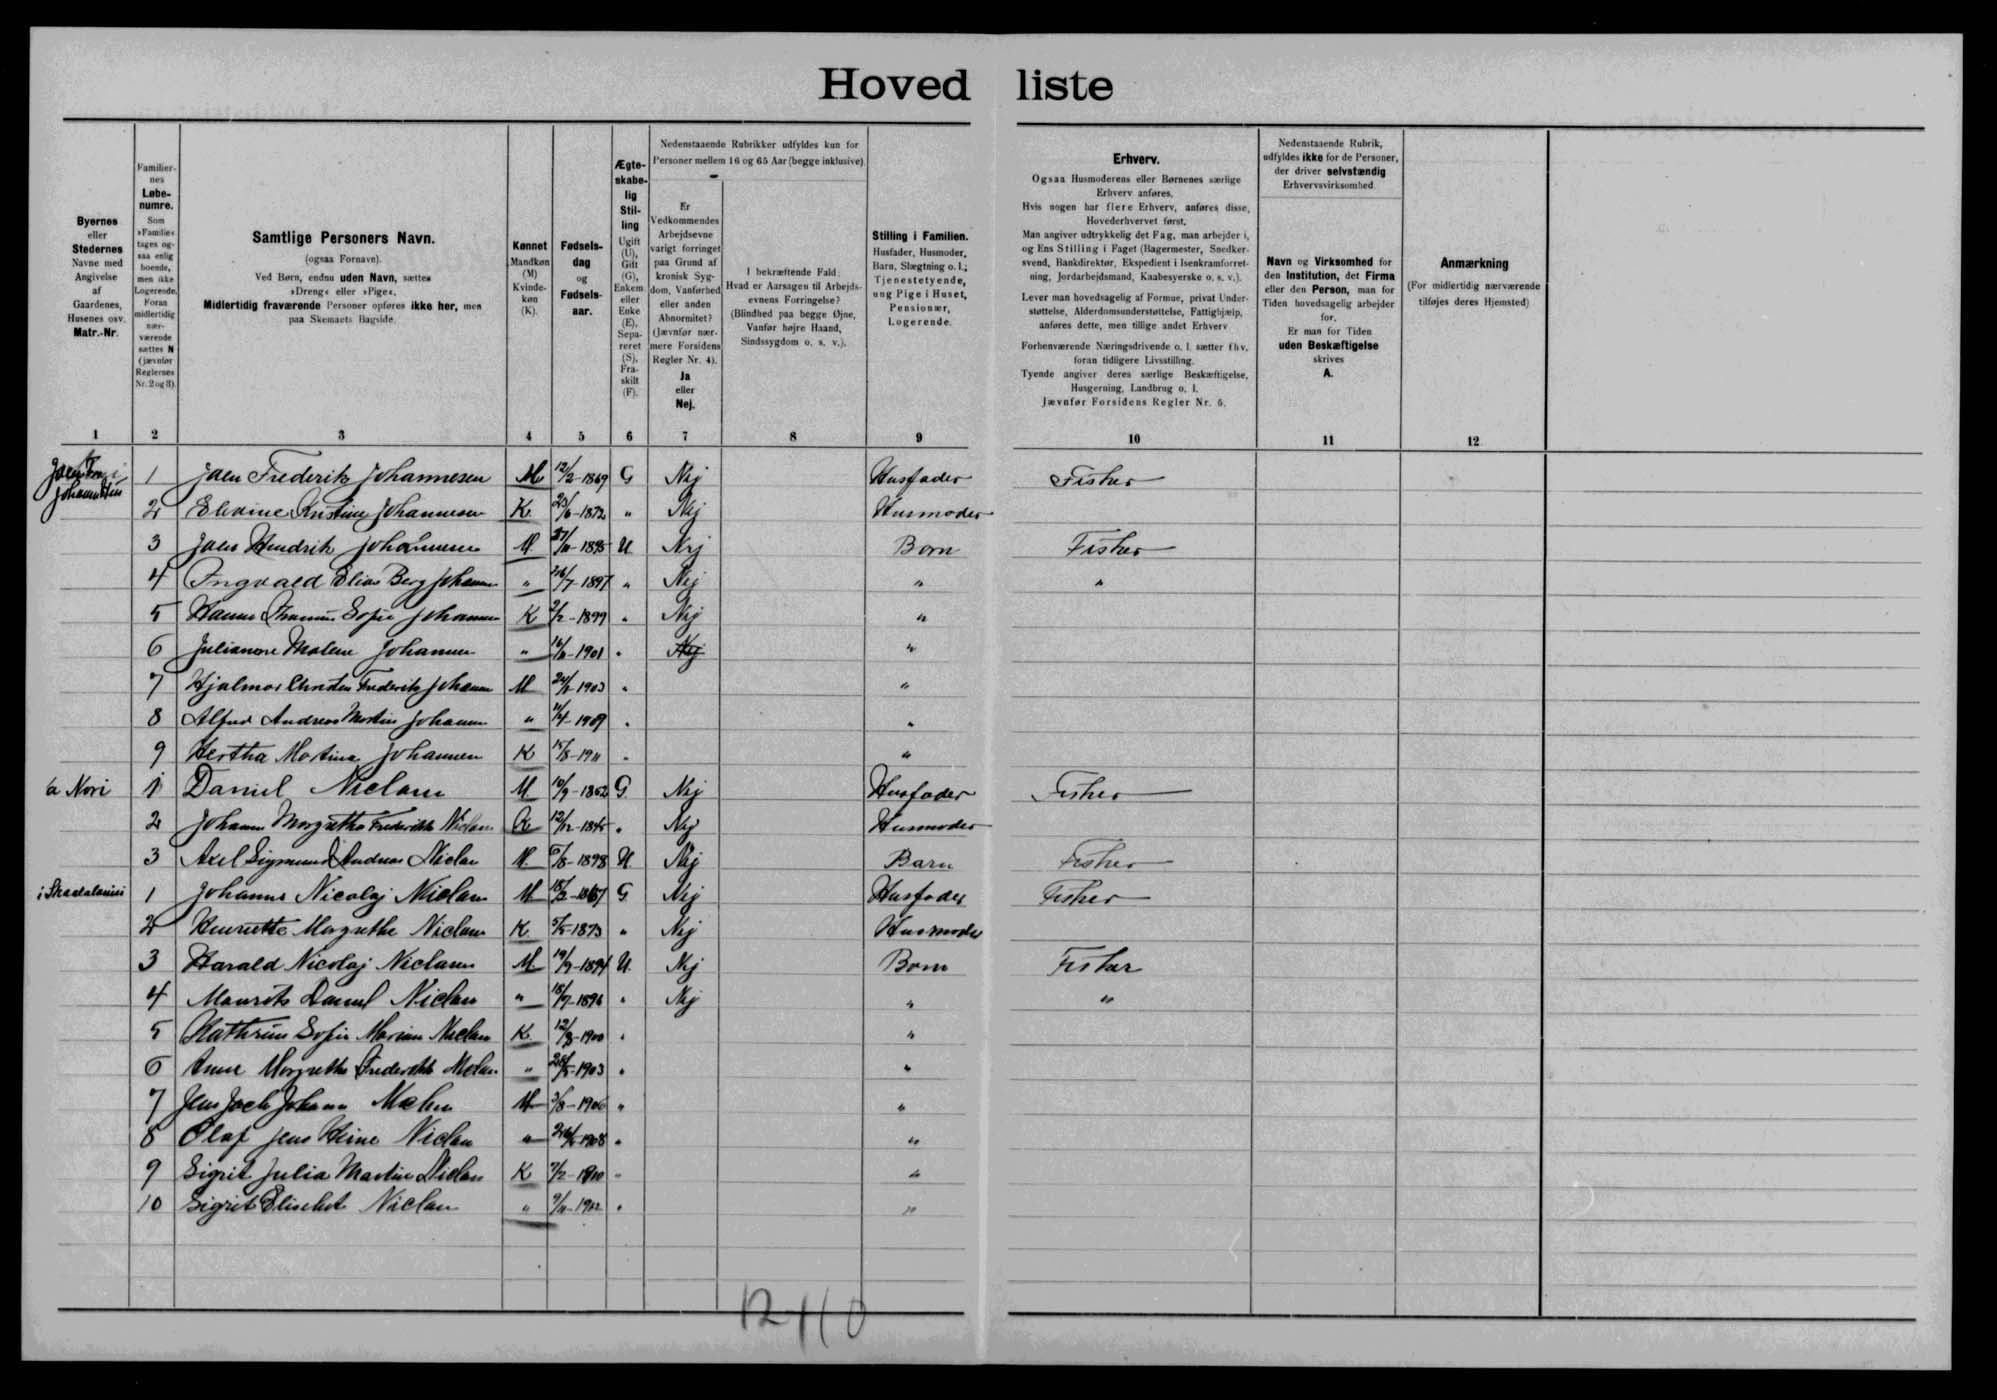 Hoved liste
Byernes
eller
Stedernes
Navne med
Angivelse
af
Gaardenes,
Husenes osv.
Matr.-Nr.
Familier-
nes
Løbe-
numre.
Som
»Familie«
tages og-
saa enlig
boende,
men ikke
Logerende.
Foran
midlertidig
nær-
værende
sættes N
(jævnfør
Reglernes
Nr. 2 og 3).
Samtlige Personers Navn.
(ogsaa Fornavn).
Ved Børn, endnu uden Navn, sættes
»Dreng« eller »Pige«.
Midlertidig fraværende Personer opføres ikke her, men
paa Skemaets Bagside.
Kønnet
Mandkøn
(M)
Kvinde-
køn
(K).
Fødsels-
dag
og
Fødsels-
aar.
Ægte-
skabe-
lig
Stil-
ling
Ugift
(U),
Gift
(G),
Enkem.
eller
Enke
(E),
Sepa-
reret
(S),
Fra-
skilt
(F).
Nedenstaaende Rubrikker udfyldes kun for
Personer mellem 16 og 65 Aar (begge inklusive).
Er
Vedkommendes
Arbejdsevne
varigt forringet
paa Grund af
kronisk Syg-
dom, Vanførhed
eller anden
Abnormitet?
(Jævnfør nær-
mere Forsidens
Regler Nr. 4).
Ja
eller
Nej.
I bekræftende Fald:
Hvad er Aarsagen til Arbejds-
evnens Forringelse?
(Blindhed paa begge Øjne,
Vanfør højre Haand,
Sindssygdom o. s. v.).
Stilling i Familien.
Husfader, Husmoder,
Barn, Slægtning o. l.;
Tjenestetyende,
ung Pige i Huset,
Pensionær,
Logerende.
Erhverv.
Ogsaa Husmoderens eller Børnenes særlige
Erhverv anføres.
Hvis nogen har flere Erhverv, anføres disse,
Hovederhvervet først.
Man angiver udtrykkelig det Fag, man arbejder i,
og Ens Stilling i Faget (Bagermester, Snedker-
svend, Bankdirektør, Ekspedient i Isenkramforret-
ning, Jordarbejdsmand, Kaabesyerske o. s. v.).
Lever man hovedsagelig af Formue, privat Under-
støttelse, Alderdomsunderstøttelse, Fattighjælp,
anføres dette, men tillige andet Erhverv
Forhenværende Næringsdrivende o. l. sætter fhv.
foran tidligere Livsstilling.
Tyende angiver deres særlige Beskæftigelse,
Husgerning, Landbrug o. l.
Jævnfør Forsidens Regler Nr. 5.
Nedenstaaende Rubrik,
udfyldes ikke for de Personer,
der driver selvstændig
Erhvervsvirksomhed.
Navn og Virksomhed for
den Institution, det Firma
eller den Person, man for
Tiden hovedsagelig arbejder
for.
Er man for Tiden
uden Beskæftigelse
skrives
A.
Anmærkning
(For midlertidig nærværende
tilføjes deres Hjemsted)
1 2 3 4 5 6 7 8 9 10 11 12
1 Joen Frederik Johannesen M 12/2-1869 G Nej Husfader Fisker
2 Kristine Johannesen K 1872 " Nej Husmoder
3 Joen Hendrik Johannesen M U Nej Barn Fisker
4 Ingvald Elias Berg Johannesen " 26/7-1897 " Nej " "
5 Hanne Sofie Johannesen K 2/2-1899 " Nej "
6 Julianne Malene Johannesen " 1901 " Nej "
7 Hjalmar Christen Frederik Johannesen M 1903 " "
8 Alfred Andreas Martin Johannesen " 11/4-1909 " "
9 Hertha Martine Johannesen K 15/8-1911 " "
1 Daniel Niclasen M 10/9-1852 G Nej Husfader Fisker
2 Johanne Margretha Frederikke Niclasen K " Nej Husmoder
3 Axel Sigmund Andreas Niclasen M 1898 U Nej Barn Fisker
1 Johannes Nicolaj Niclasen M 1867 G Nej Husfader Fisker
2 Henriette Margrethe Niclasen K 1873 " Nej Husmoder
3 Harald Nicolaj Niclasen M 19/9-1894 U Nej Barn Fisker
4 Mourits Daniel Niclasen " 18/7-1896 " Nej " "
5 Kathrine Sofie Marian Niclasen K 1900 " "
6 Anne Margrethe Frederikke Niclasen " 1903 " "
7 Jens Jacob Johann Niclasen M 3/8-1906 " "
8 Olaf Jens Heine Niclasen " 1908 " "
9 Sigrit Julia Martine Niclasen K 7/2-1910 " "
10 Sigrit Elisebet Niclasen " 9/11-1912 " "
12+10